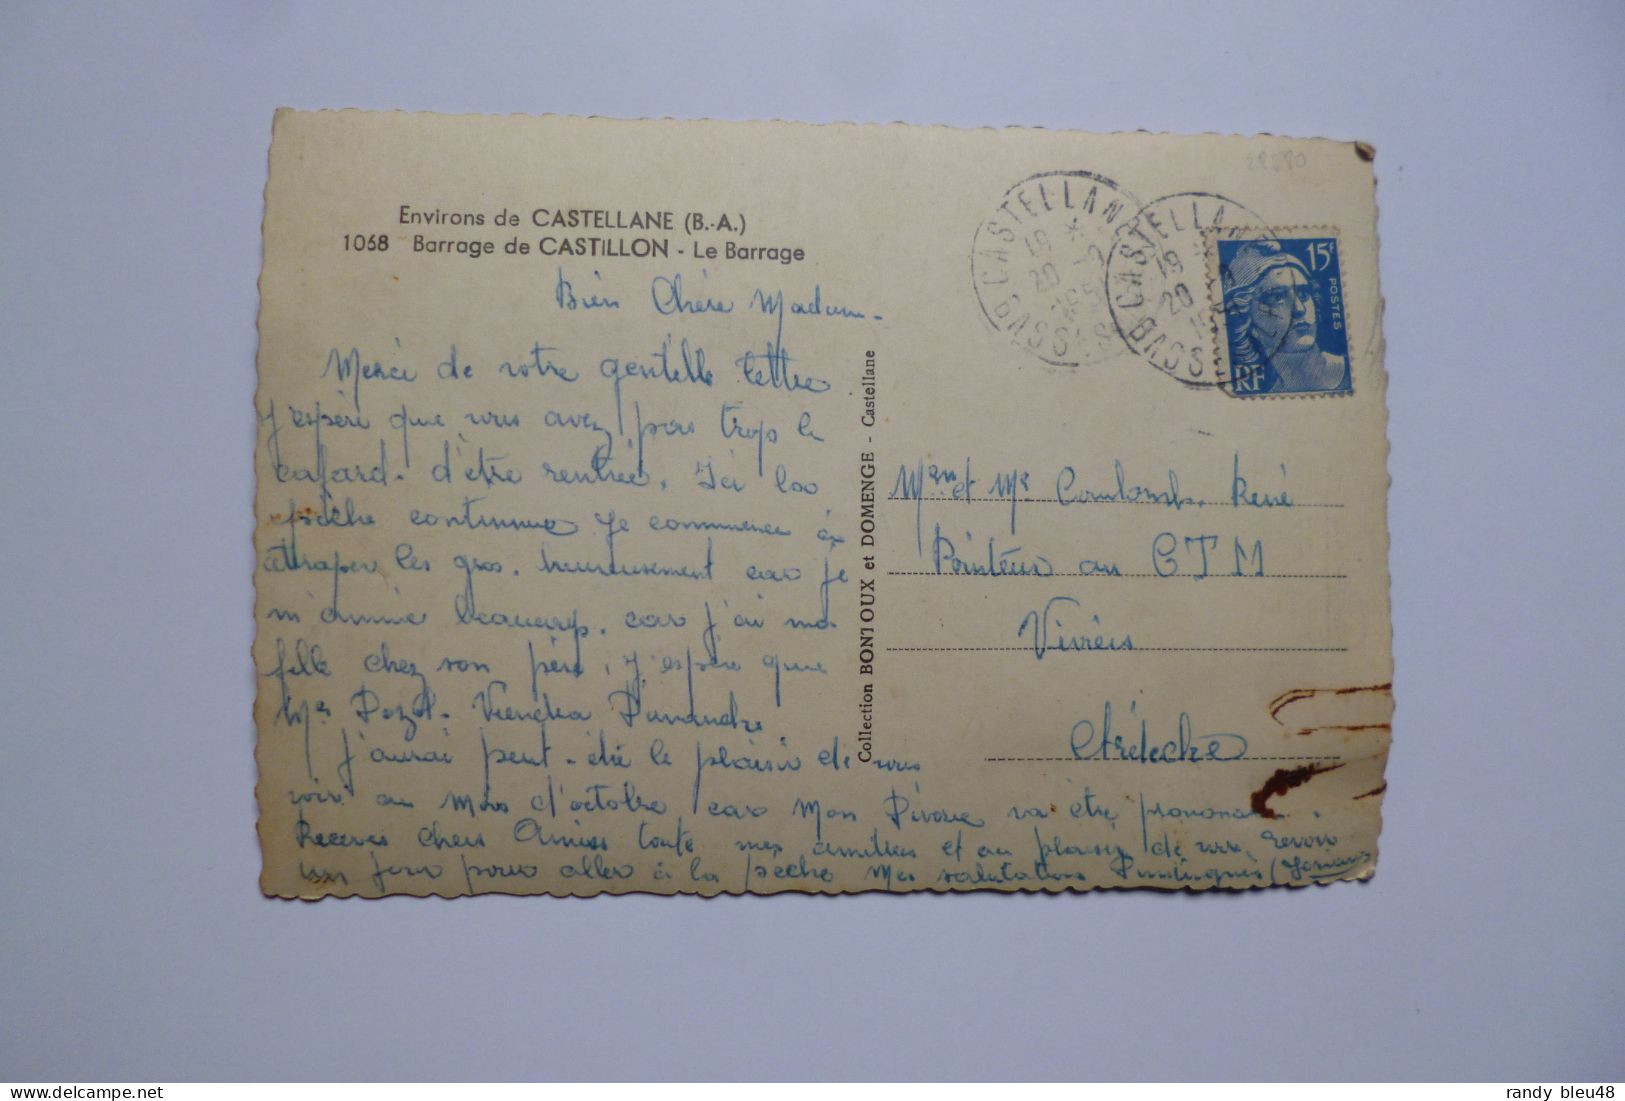 Environs de CASTELLANE (B.-A.)
1068 Barrage de CASTILLON - Le Barrage
Bien Chère Madame
Merci de votre gentille lettre
J'espère que vous avez pas trop le
cafard. d'être rentrée. Ici la
pêche continue je commence à
attraper les gros. heureusement car je
m'annuie beaucoup. car j'ai ma
fille chez son père, J'espère que
Mr Viendra Dimanche
J'aurai peut-être le plaisir de vous
voir au Mois d'octobre car Mon Divorce va être prononcé
Recevez chers Amies toute mes amitiées et au plaisir de vous revoir
un jour pour aller à la pêche Mes salutations Distinguées
Collection BONJOUX et DOMENGE - Castellane
CASTELLANE
19 *
20 -9
BASSES
CASTELLANE
19
20
BASSES
15F
POSTES
RF
28590
Mme et Mr Coulomb. René
Pointeur au CTM
Viviers
Ardèche
randy bleu48